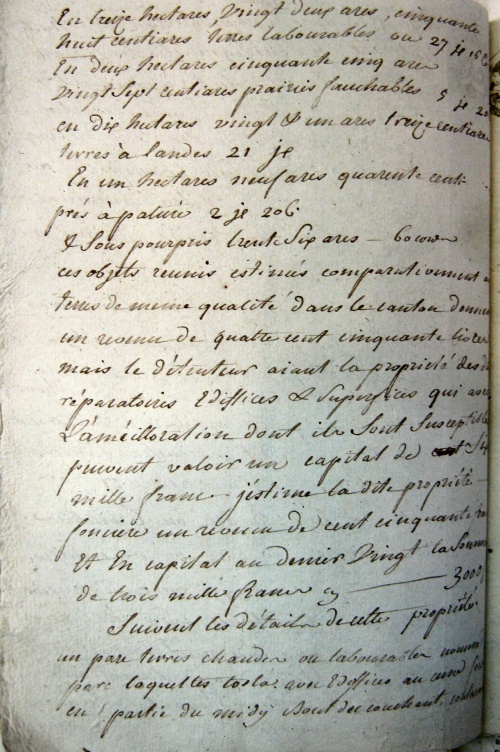 En treize hectares, vingt deux ares, cinquante
huit centiares terres labourables ou 27 je 16
En deux hectares cinquante cinq are
vingt Sept centiares prairies fauchables 5 je 20
en dix hectares vingt & un ares treize centiares
terres à landes 21 je
En un hectares neuf ares quarente centi-
prés à pature 2 je 206
& Sous pourpris trente Six ares — 60
ces objets reunis estimés comparativement a
terres de meme qualité dans le canton donne
un revenu de quatre cent cinquante livres
mais le détenteur aiant la propriété des d
réparatoires Ediffices & Superfices qui
L'améilloration dont ils Sont Susceptibles
peuvent valoir un capital de Sep
mille franc j'éstime la dite propriété
fonciere un revenu de cent cinquante
Et En capital au denier Vingt la Somme
de trois mille francs — 3000
Suivent les détails de cette propriété
un parc terres chaudes ou labourables nommé
parc avec Ediffice au cerne
en partie du midy Bout du couchant